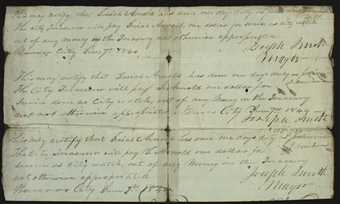 This may certify that Josiah Arnold has done one day duty as
The City Treasurer will pay Josiah Arnold, one dollar for service as City watch
out of any money in the Treasury not otherwise appropriated
City June 7th
Joseph Smith
Mayor
This may certify that Josiah Arnold has done one days duty as
The City Treasurer will pay Arnold one dollar for
Service done as City watch, out of any Money in the Treasury
not otherwise appropriated City June 7th
Joseph Smith
This may certify that Josiah Ar has done one days duty
The City Treasurer will pay Arnold one dollar for
service as City watch, out of any Money in the Treasury
not otherwise appropriated
City June 7th
Joseph Smith
Mayor